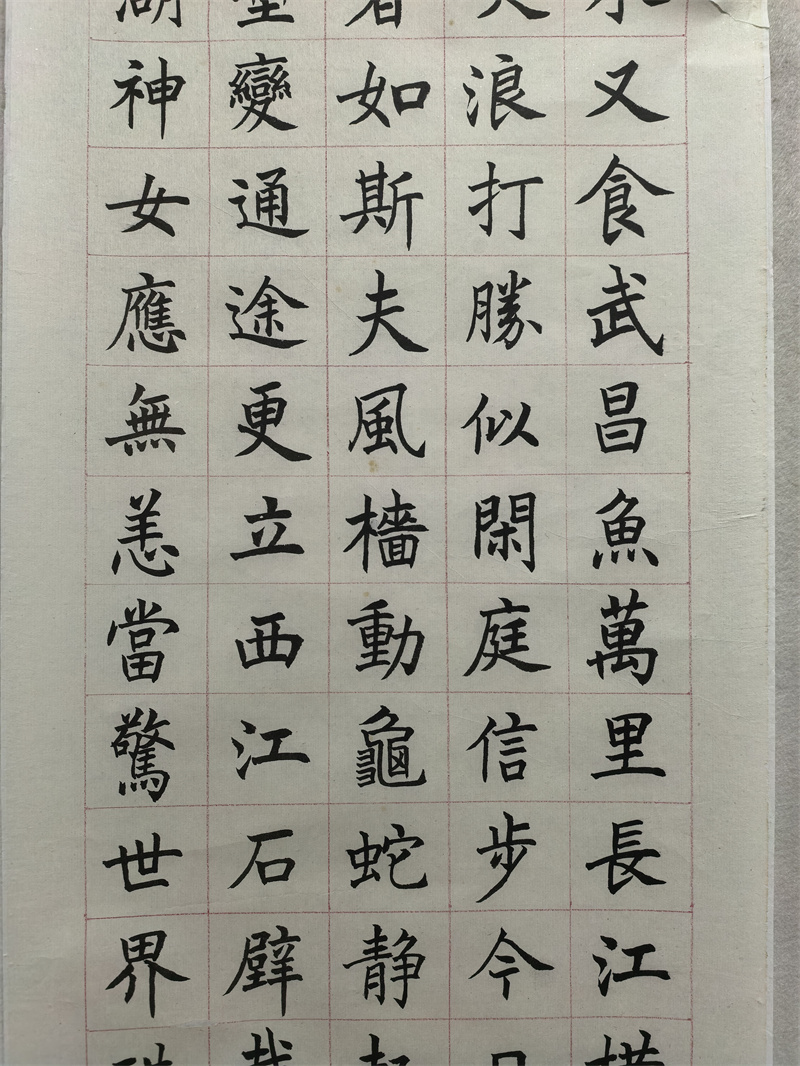 又食武昌魚萬里長江
浪打勝似閑庭信步今
者如斯夫風檣動龜蛇静
變通途更立西江石壁
湖神女應無恙當驚世界